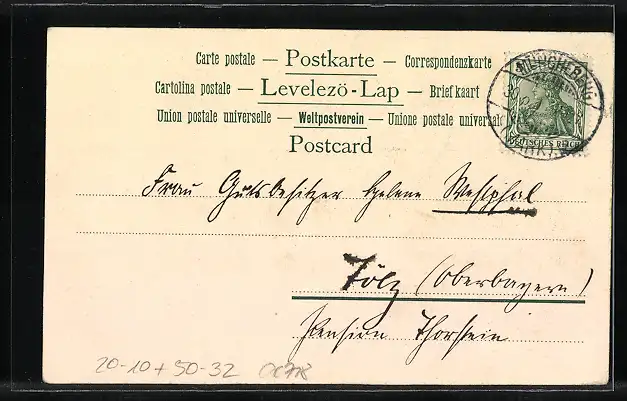 Carte postale — Postkarte — Correspondenzkarte
Cartolina postale — Levelező-Lap — Briefkaart
Union postale universelle — Weltpostverein — Unione postale universale
Postcard
MÜNCHEBERG
(MARK)
DEUTSCHES REICH
Frau Gutsbesitzer Helene Westphal
Tölz (Oberbayern)
Pension Thorstein
20-10+50-32